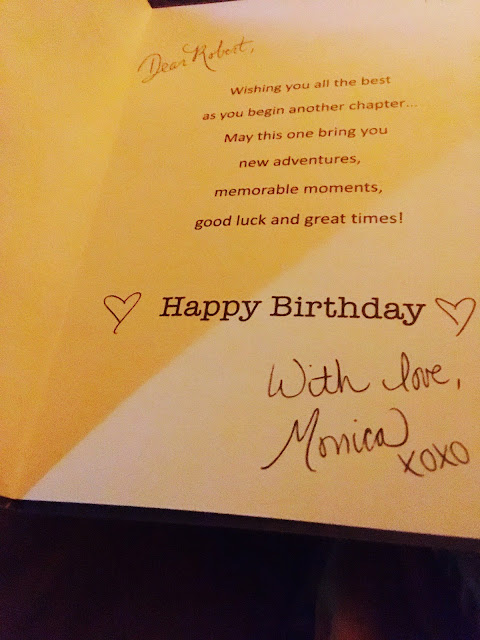 Dear Robert,
Wishing you all the best
as you begin another chapter...
May this one bring you
new adventures,
memorable moments,
good luck and great times!
Happy Birthday
With love,
Monica
xoxo